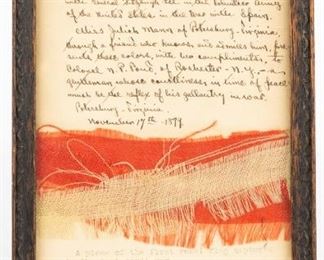 of the United States in the War with Spain.
Miss Juliet Mann of Petersburg - Virginia
through a friend who knows and admires him, pre-
sents these colors, with her compliments, to
Colonel N. P. Pond, of Rochester - N.Y. - a
gentleman whose courtliness in time of peace
must be the reflex of his gallantry in war.
Petersburg - Virginia
November 17th - 1899
A piece of the first